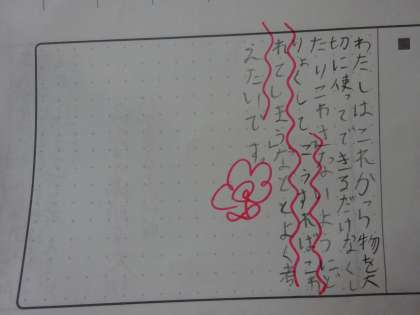 わたしはこれから物を大
切に使ってできるだけなくし
たりこわさないようにど
りょくしてこうすればこわ
れてしまうなどとよく考
えたいです。